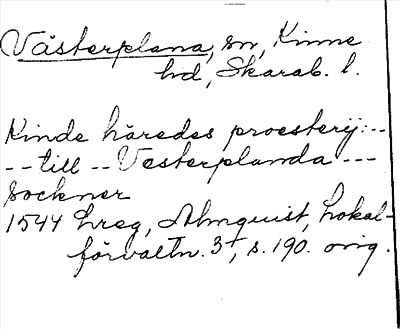 Västerplana, sn, Kinne
hd, Skarab. l.
Kinde häredes proesterij:--
-- till -- Vesterplanda ---
sockner
1544 Lreg, Almquist, Lokal-
förvaltn. 3, s. 190. orig.